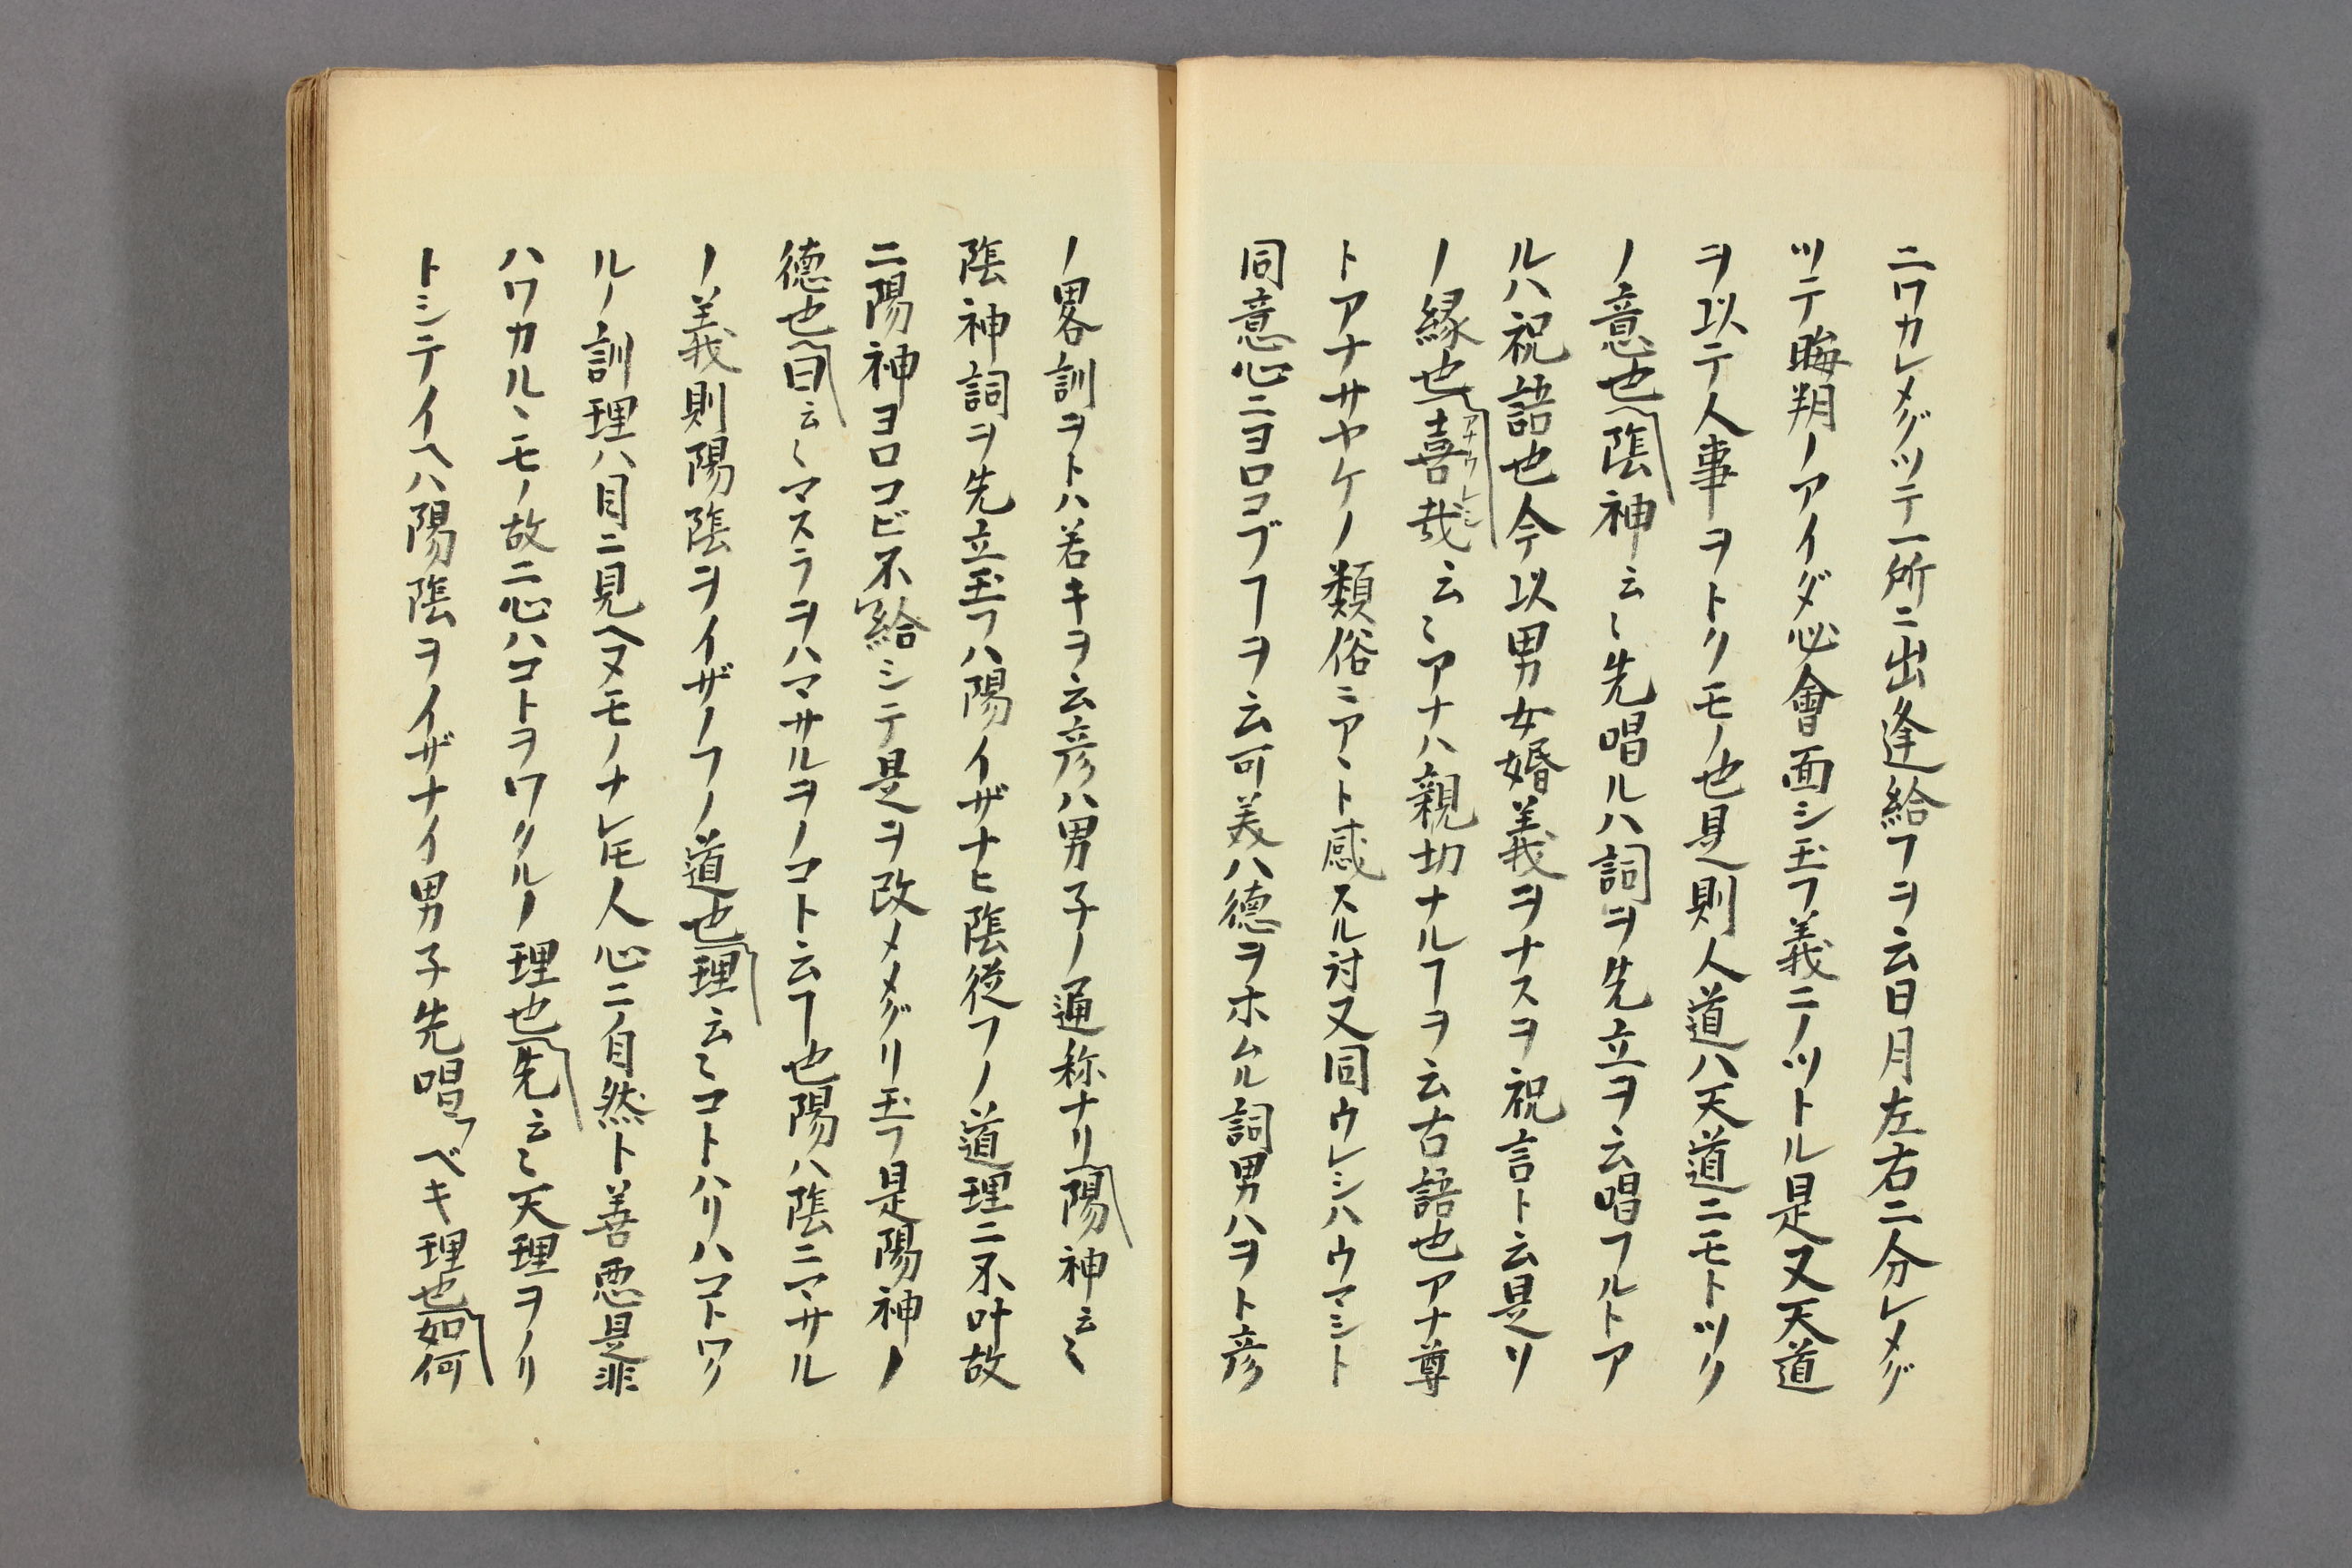 ニワカレメグツテ一所ニ出逢給フヲ云日月左右ニ分レメグ
ツテ晦朔ノアイダ必會面シ玉フ義ニノツトル是又天道
ヲ以テ人事ヲトクモノ也是則人道ハ天道ニモトツク
ノ意也陰神云〻先唱ルハ詞ヲ先立ヲ云唱フルトア
ルハ祝語也今以男女婚義ヲナスヲ祝言ト云是ソ
ノ縁也喜哉アナウレシ云〻アナハ親切ナルヿヲ云古語也アナ尊
トアナサヤケノ類俗ニアヽト感スル討又同ウレシハウマシト
同意心ニヨロコブヿヲ云可美ハ徳ヲホムル詞男ハヲト彦
ノ畧訓ヲトハ若キヲ云彦ハ男子ノ通称ナリ陽神云〻
陰神詞ヲ先立玉フハ陽イザナヒ陰従フノ道理ニ不叶故
ニ陽神ヨロコビ不給シテ是ヲ改メメグリ玉フ是陽神ノ
徳也曰云〻マスラヲハマサルヲノコト云ヿ也陽ハ陰ニマサル
ノ義則陽陰ヲイザノフノ道也理云〻コトハリハコトワク
ルノ訓理ハ目ニ見ヘヌモノナレ𪜈人心ニ自然ト善悪是非
ハワカルヽモノ故ニ心ハコトヲワクルノ理也先云〻天理ヲノリ
トシテイヘハ陽陰ヲイザナイ男子先唱フベキ理也如何